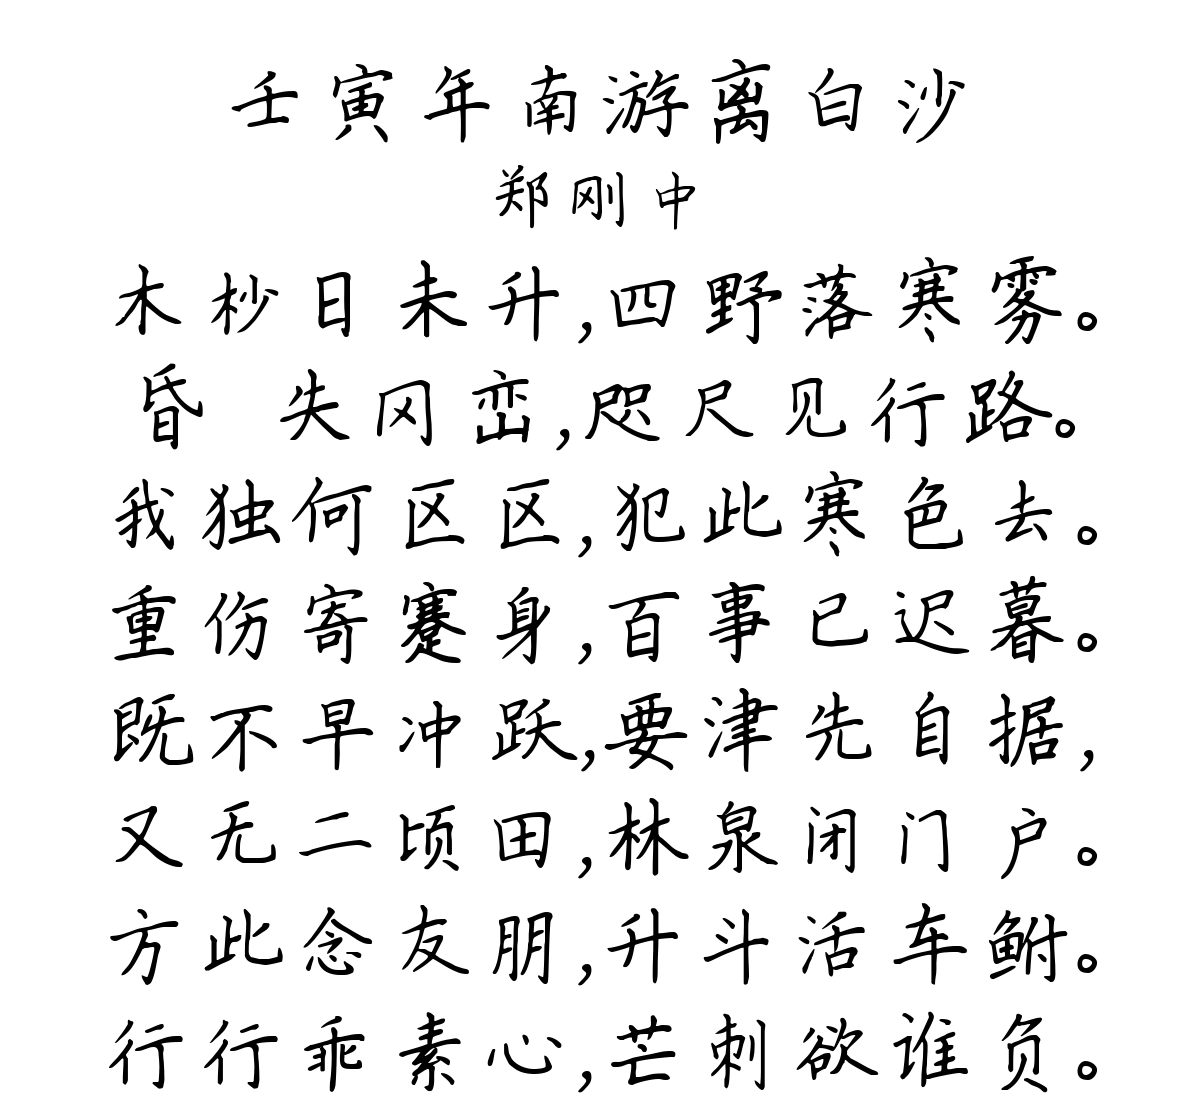 壬寅年南游离白沙
郑刚中
木杪日未升,四野落寒雾。
昏 失冈峦,咫尺见行路。
我独何区区,犯此寒色去。
重伤寄蹇身,百事已迟暮。
既不早冲跃,要津先自据,
又无二顷田,林泉闭门户。
方此念友朋,升斗活车鲋。
行行乖素心,芒刺欲谁负。